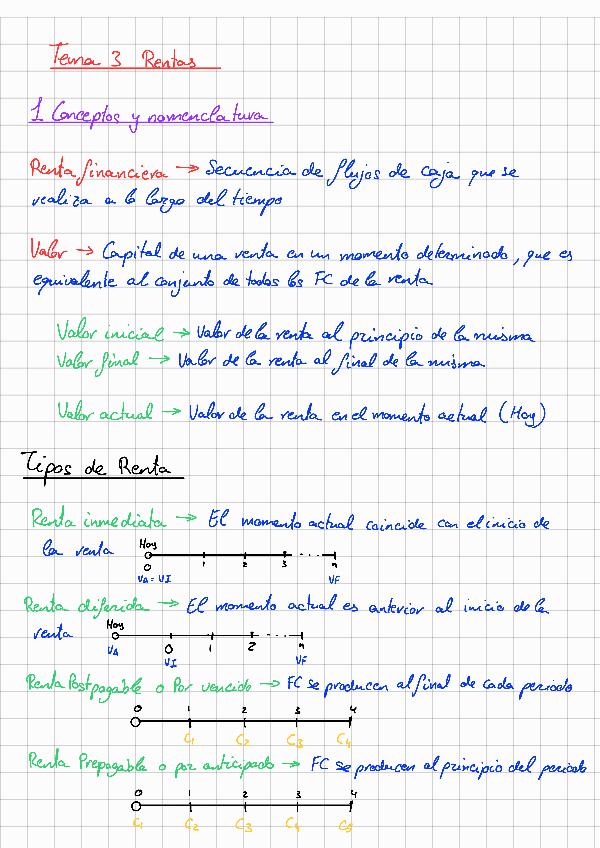 Tema 3 Rentas
1 Conceptos y nomenclatura
Renta financiera → Secuencia de flujos de caja que se
realiza a lo largo del tiempo
Valor → Capital de una renta en un momento determinado, que es
equivalente al conjunto de todos los FC de la renta
Valor inicial → Valor de la renta al principio de la misma
Valor final → Valor de la renta al final de la misma
Valor actual → Valor de la renta en el momento actual (Hoy)
Tipos de Renta
Renta inmediata → El momento actual coincide con el inicio de
la renta Hoy
0 1 2 3 n
VA = VI VF
Renta diferida → El momento actual es anterior al inicio de la
renta Hoy
VA 0 1 2 n
VI VF
Renta Postpagable o Por vencido → FC se producen al final de cada periodo
0 1 2 3 4
C1 C2 C3 C4
Renta Prepagable o por anticipado → FC se producen al principio del periodo
0 1 2 3 4
C1 C2 C3 C4 C5